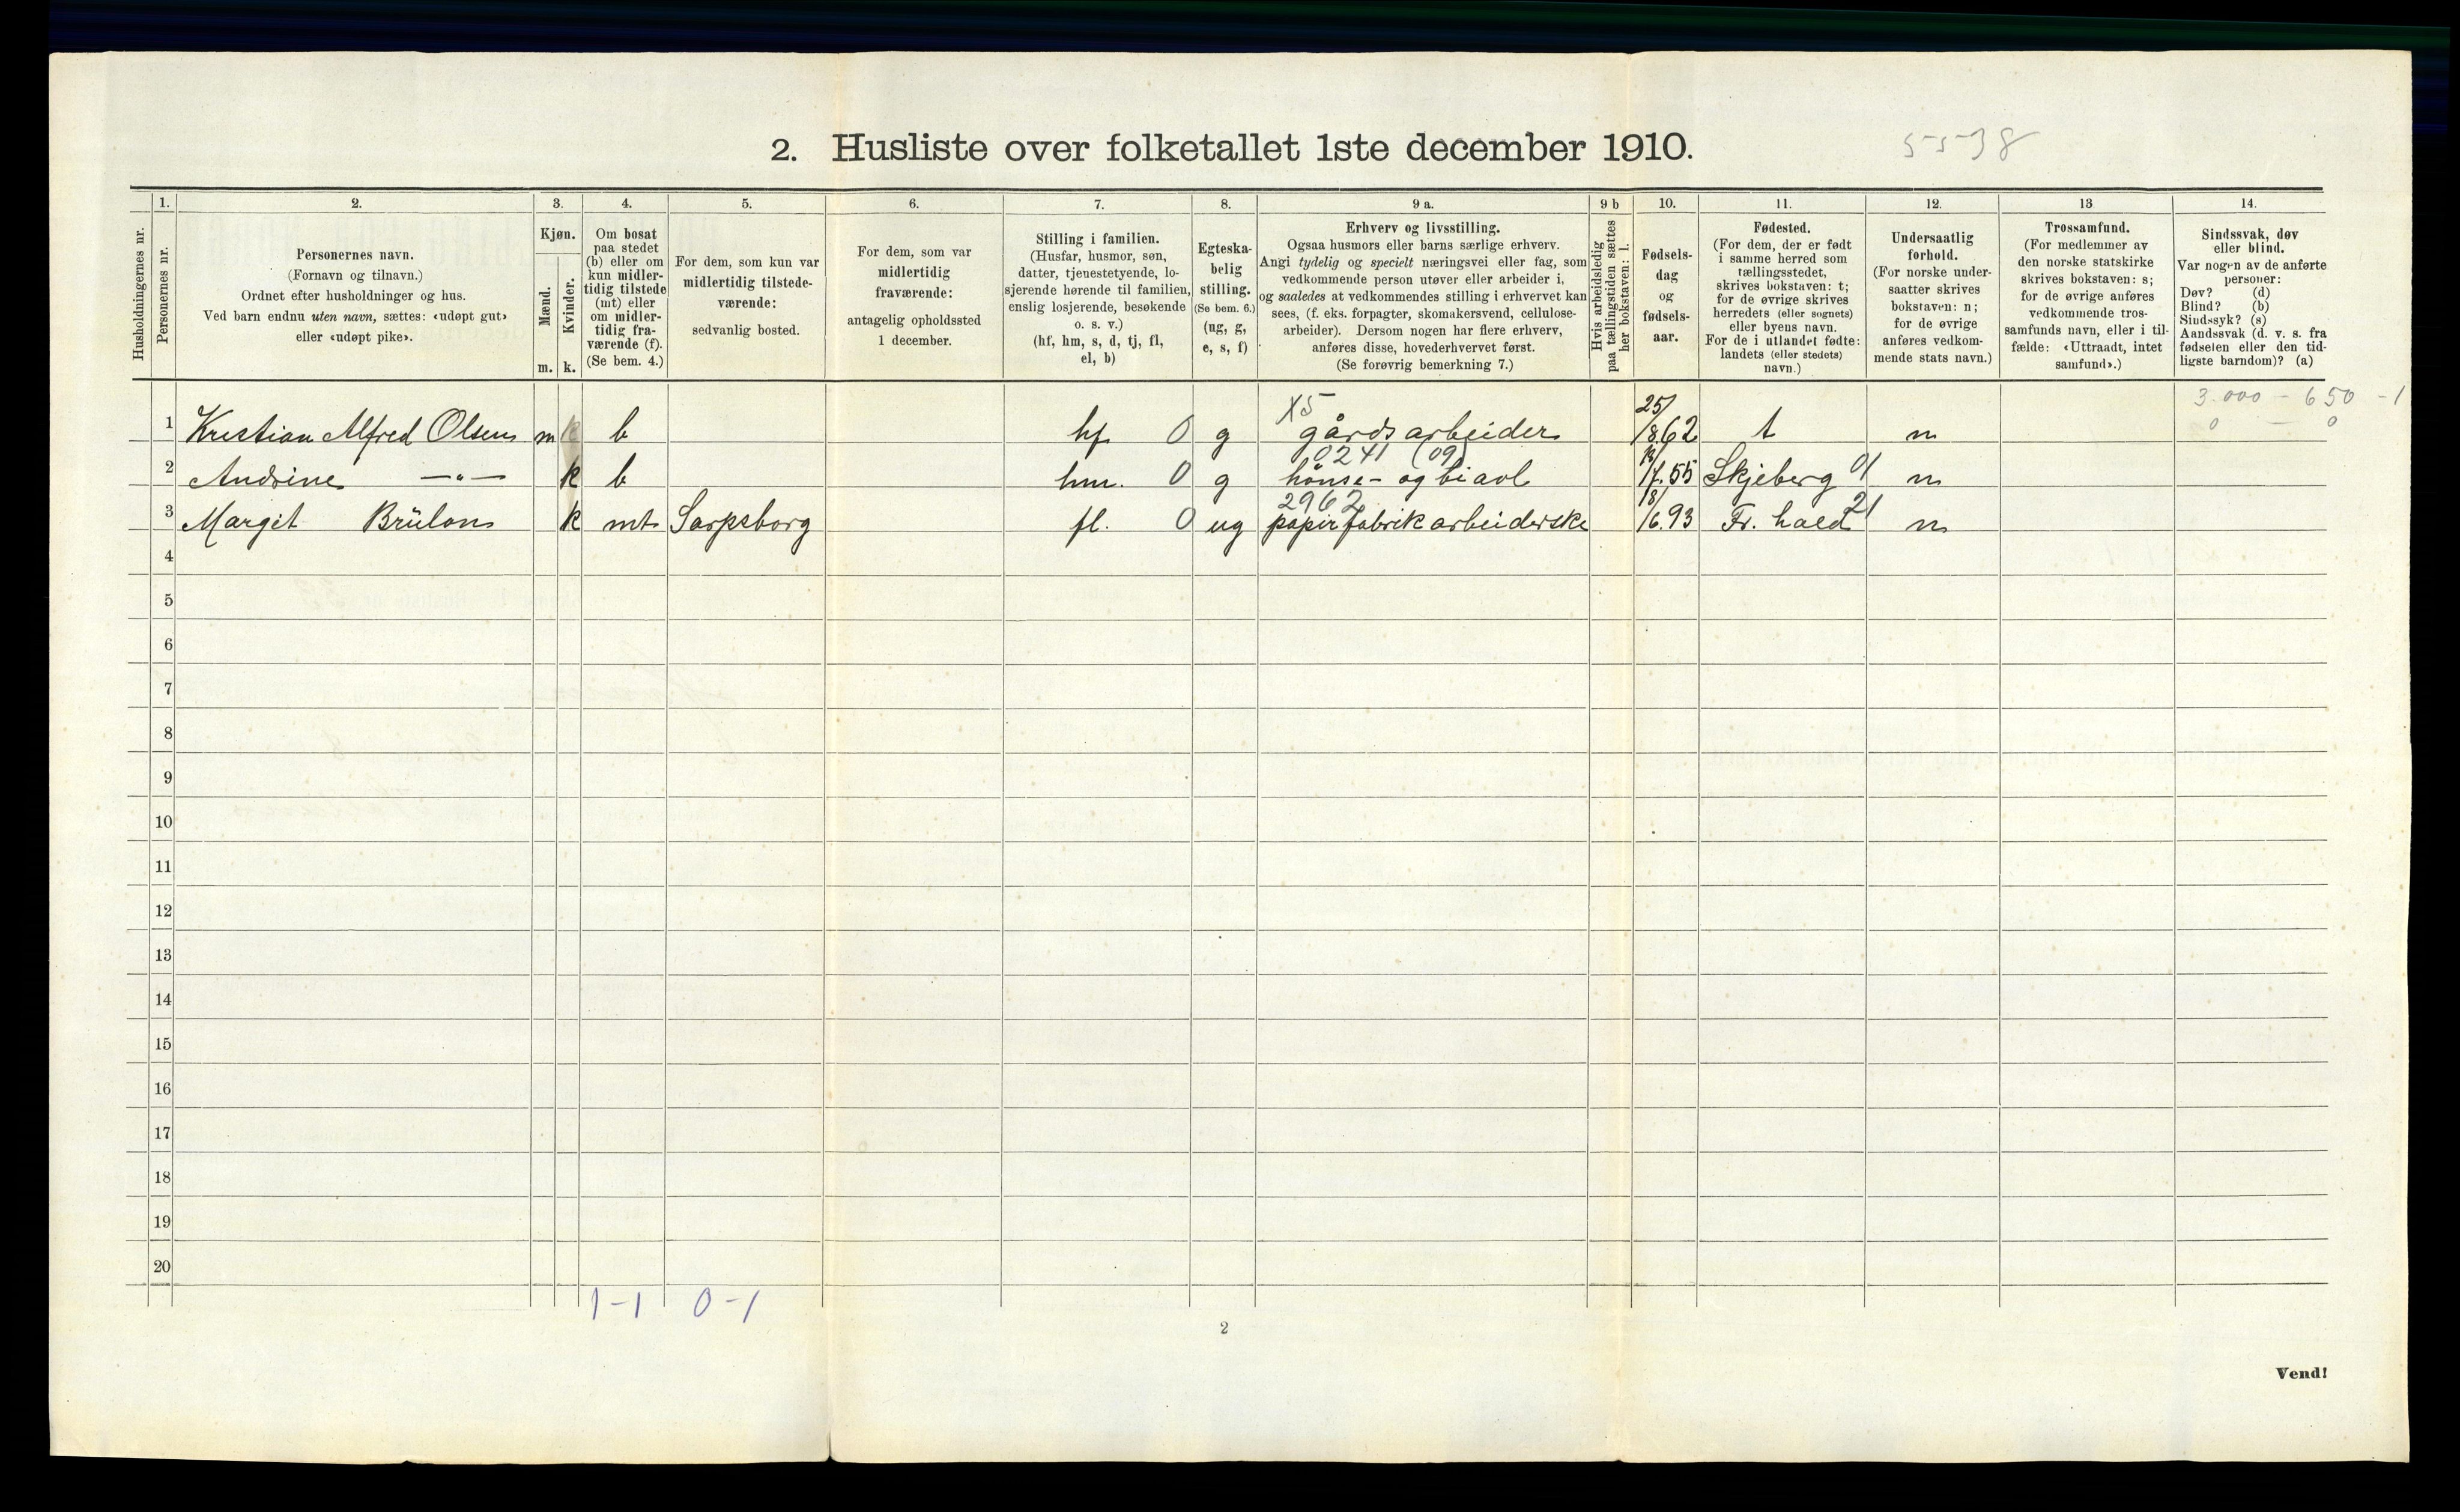 2. Husliste over folketallet 1ste december 1910.
5-5-38
Husholdningernes nr.
1.
Personernes nr.
2.
Personernes navn.
(Fornavn og tilnavn.)
Ordnet efter husholdninger og hus.
Ved barn endnu uten navn, sættes: «udøpt gut»
eller «udøpt pike».
3.
Kjøn.
Mænd.
Kvinder.
m.
k.
4.
Om bosat
paa stedet
(b) eller om
kun midler-
tidig tilstede
(mt) eller
om midler-
tidig fra-
værende (f).
(Se bem. 4.)
5.
For dem, som kun var
midlertidig tilstede-
værende:
sedvanlig bosted.
6.
For dem, som var
midlertidig
fraværende:
antagelig opholdssted
1 december.
7.
Stilling i familien.
(Husfar, husmor, søn,
datter, tjenestetyende, lo-
sjerende hørende til familien,
enslig losjerende, besøkende
o. s. v.)
(hf, hm, s, d, tj, fl,
el, b)
8.
Egteska-
belig
stilling.
(Se bem. 6.)
(ug, g,
e, s, f)
9 a.
Erhverv og livsstilling.
Ogsaa husmors eller barns særlige erhverv.
Angi tydelig og specielt næringsvei eller fag, som
vedkommende person utøver eller arbeider i,
og saaledes at vedkommendes stilling i erhvervet kan
sees, (f. eks. forpagter, skomakersvend, cellulose-
arbeider). Dersom nogen har flere erhverv,
anføres disse, hovederhvervet først.
(Se forøvrig bemerkning 7.)
9 b
Hvis arbeidsledig
paa tællingstiden sættes
her bokstaven: l.
10.
Fødsels-
dag
og
fødsels-
aar.
11.
Fødested.
(For dem, der er født
i samme herred som
tællingsstedet,
skrives bokstaven: t;
for de øvrige skrives
herredets (eller sognets)
eller byens navn.
For de i utlandet fødte:
landets (eller stedets)
navn.)
12.
Undersaatlig
forhold.
(For norske under-
saatter skrives
bokstaven: n;
for de øvrige
anføres vedkom-
mende stats navn.)
13
Trossamfund.
(For medlemmer av
den norske statskirke
skrives bokstaven: s;
for de øvrige anføres
vedkommende tros-
samfunds navn, eller i til-
fælde: «Uttraadt, intet
samfund».)
14.
Sindssvak, døv
eller blind.
Var nogen av de anførte
personer:
Døv? (d)
Blind? (b)
Sindssyk? (s)
Aandssvak (d. v. s. fra
fødselen eller den tid-
ligste barndom)? (a)
3.000 - 650 - 1
0 - 0
X5
1 Kristian Alfred Olsen m b hf 0 g gårdsarbeider 25/8 62 t n
0241 (09)
2 Andrine —"— k b hm. 0 g hönse- og biavl 55 Skjeberg 01 n
2962
3 Margit Brülon k mt Sarpsborg fl. 0 ug papirfabrikarbeiderske 18/6.93 Fr. hald 21 n
4
5
6
7
8
9
10
11
12
13
14
15
16
17
18
19
20
1-1 0-1
2
Vend!